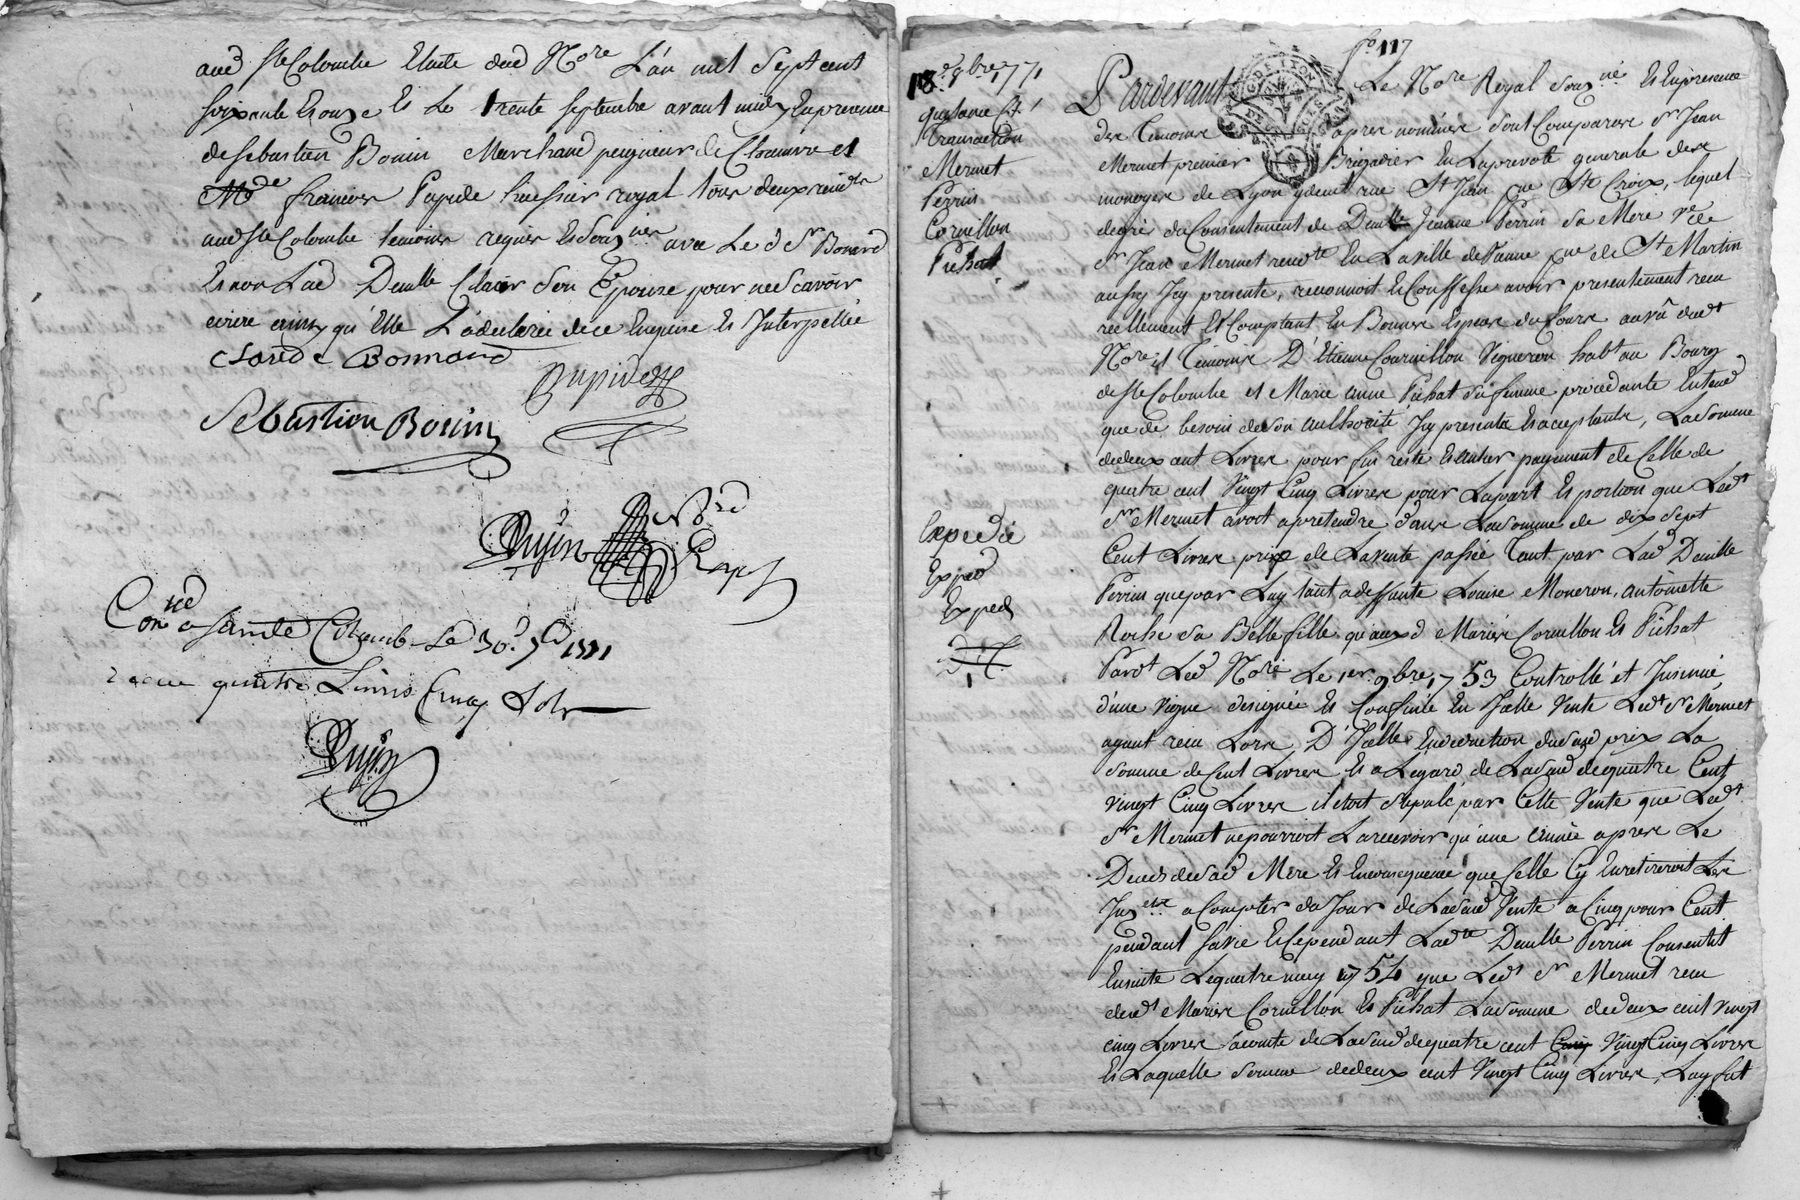 aud Ste Colombe Etude dud Nore L'an mil Sept cent
soixante Et onze Et Le trente septembre avant midy En presence
de Sebastien Bonin Marchand peigneur de Chanvre et
francois Papide huissier royal tous deux reids
aud Ste Colombe temoins requis Et Sousnés avec Le d Sr Bonard
Et non Lad Demlle Claire Son Epouse pour ne Scavoir
ecrire ainsy qu'Elle L'a declaré de ce Enquise Et Interpellée
Claude Bonnard
Papide
Sebastien Bonin
Dujin Nore Royal
Conlé a Sainte Colombe Le 30e 7bre 1771
Recu quatre Livres Cinq Sols
Dujin
fo 117
18e 8bre 1771
quitance Et
transaction
Mermet
Perrin
Cornillon
Pichat
Expedié
Exped
Exped
Pardevant Le Nore Royal Sousné Et En presence
des Temoins apres nommés Sont Comparus Sr Jean
Mermet premier Brigadier En La prevoté generale des
monoyes de Lyon y demt rue St Jean psse Ste Croix, lequel
de gré du Consentement de Demlle Jeanne Perrin Sa Mere Ve de
Sr Jean Mermet reside En La ville de Vienne psse de St Martin
aussy Icy presente, reconnoit Et Confesse avoir presentement recu
reellement Et Comptant En Bonnes Especes du Cours au vû dudt
Nore et Temoins D'Etienne Cornillon Vigneron habt au Bourg
de Ste Colombe et Marie anne Pichat Sa femme procedante Entend
que de besoin de Son authorité Icy presents Et acceptants, La Somme
de deux cent Livres pour fin reste Et entier payement de Celle de
quatre cent Vingt Cinq Livres pour La part Et portion que Ledt
Sr Mermet avoit a pretendre dans La Somme de dix Sept
Cent Livres prix de La vente passée Tant par Lad Demlle
Perrin que par Luy tant a deffunte Louise Moneron, antoinette
Roche Sa Belle fille qu'aux d Mariés Cornillon Et Pichat
Pardt Led Nore Le 1er 9bre 1753 Controllé et Insinué,
d'une Vigne designée Et Confinée En Icelle Vente Ledt Sr Mermet
ayant recu Lors D'Icelle En deduction dusud prix La
Somme de Cent Livres Et a L'egard de La Sud de quatre Cent
vingt Cinq Livres il etoit Stipulé par Cette Vente que Ledt
Sr Mermet ne pourroit La recevoir qu'une année apres Le
Deceds de Sad Mere Et En consequence que Celle Cy En retireroit Les
Interets a Compter du Jour de La Sud Vente a Cinq pour Cent
pendant Sa vie Et Cependant Ladte Demlle Perrin Consentit
Ensuite Le quatre may 1754 que Ledt Sr Mermet recu
desdt Mariés Cornillon Et Pichat La Somme de deux cent vingt
cinq Livres a Compte de La Sud de quatre cent Cinq Vingt Cinq Livres
Et Laquelle Somme de deux cent Vingt Cinq Livres, Luy fut